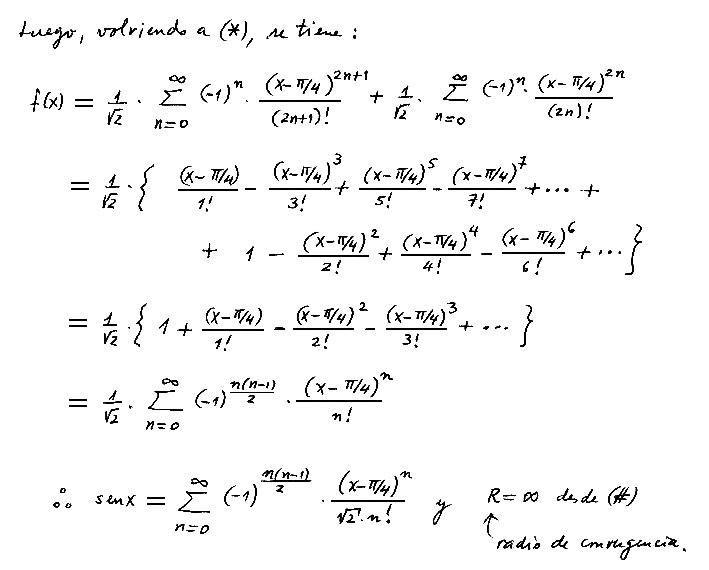 Luego, volviendo a (*), se tiene:
f(x) = 1/√2 · ∑_{n=0}^{∞} (-1)^n · (x-π/4)^{2n+1}/(2n+1)! + 1/√2 · ∑_{n=0}^{∞} (-1)^n · (x-π/4)^{2n}/(2n)!
= 1/√2 · { (x-π/4)/1! - (x-π/4)^3/3! + (x-π/4)^5/5! - (x-π/4)^7/7! + ... +
+ 1 - (x-π/4)^2/2! + (x-π/4)^4/4! - (x-π/4)^6/6! + ... }
= 1/√2 · { 1 + (x-π/4)/1! - (x-π/4)^2/2! - (x-π/4)^3/3! + ... }
= 1/√2 · ∑_{n=0}^{∞} (-1)^{n(n-1)/2} · (x-π/4)^n/n!
∴ sen x = ∑_{n=0}^{∞} (-1)^{n(n-1)/2} · (x-π/4)^n/(√2·n!) y R=∞ desde (#)
↑ radio de convergencia.